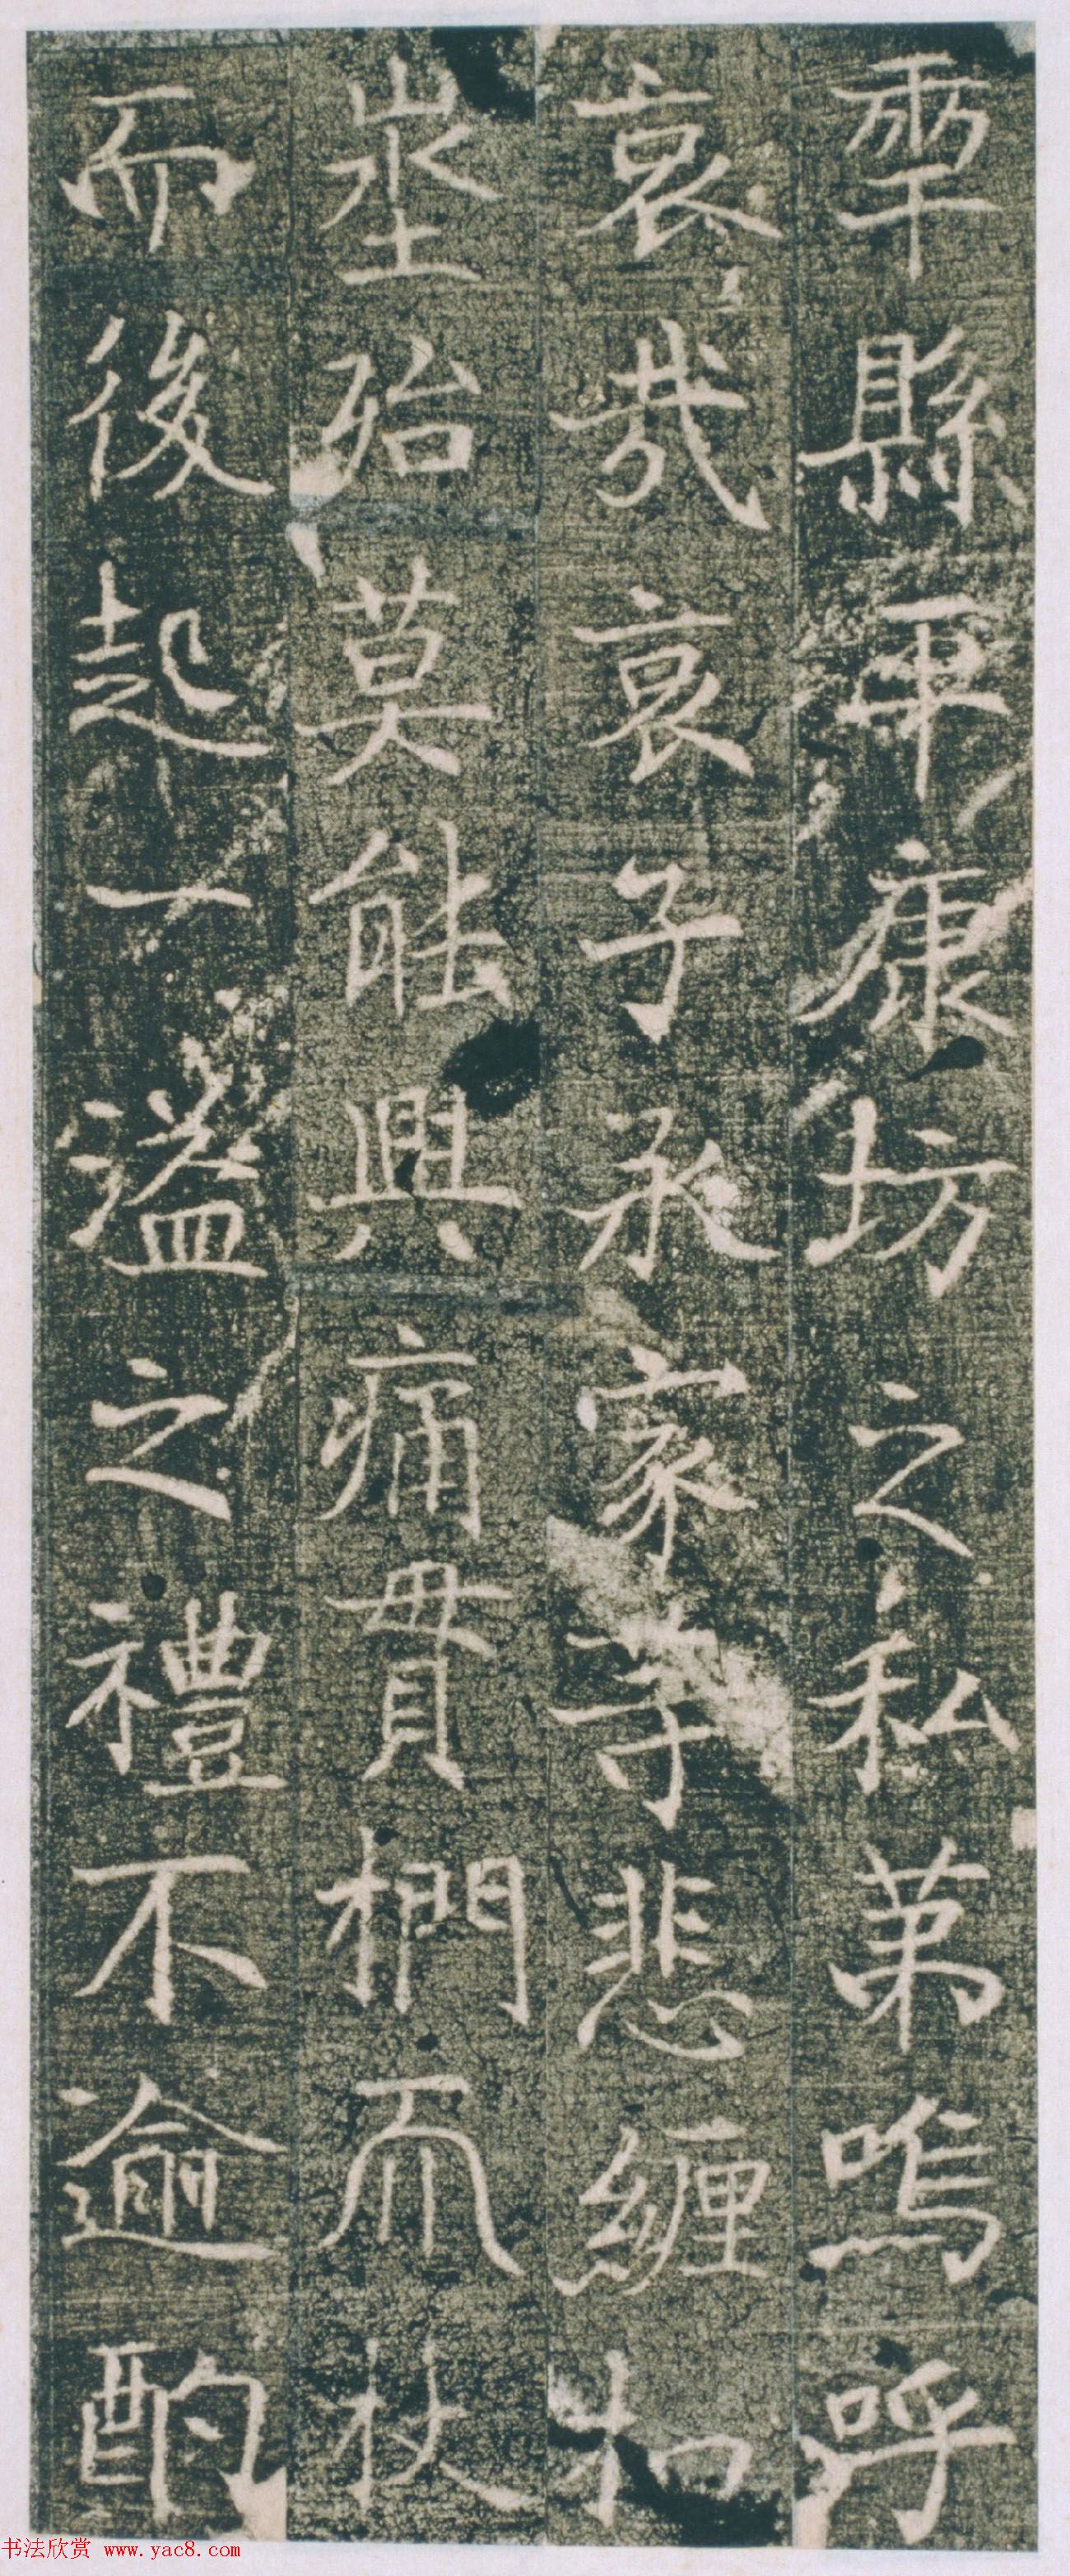 雩縣平康坊之私第嗚呼
哀哉哀子承家等悲纏
岳殆莫能興痛貫櫚而杖
而後起一溢之禮不逾酌
书法欣赏 www.yac8.com